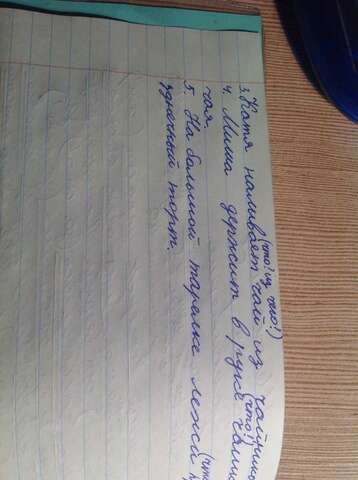 (что? из чего?)
3. Катя наливает чай из чайника
(что?)
4. Миша держит в руке чашк
чая.
(что
5. На большой тарелке лежи
удачный торт.